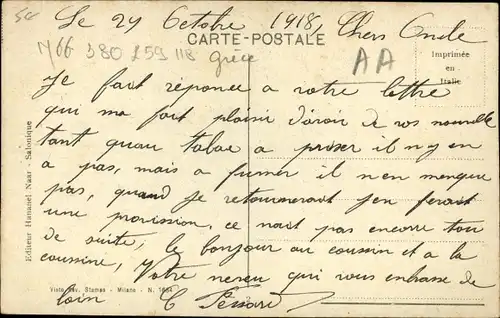 Le 29 Octobre 1918,
Chers Oncle
CARTE-POSTALE
N66 380 £59 118 grèce
AA
Imprimée
en
Italie
Je fait reponce a votre lettre
qui ma fait plaisir d'avoir de vos nouvelle
tant quau tabac a priser il n'y en
a pas, mais a fumer il n'en menque
pas, quand je retournerait j'en ferait
une provission, ce nait pas encorre tou
de suite, le bonjour au coussin et a la
coussine, Votre neveu qui vous enbrasse de
loin
Editeur Hananel Naar - Salonique
Visto Rev. Stampa - Milano - N. 1654